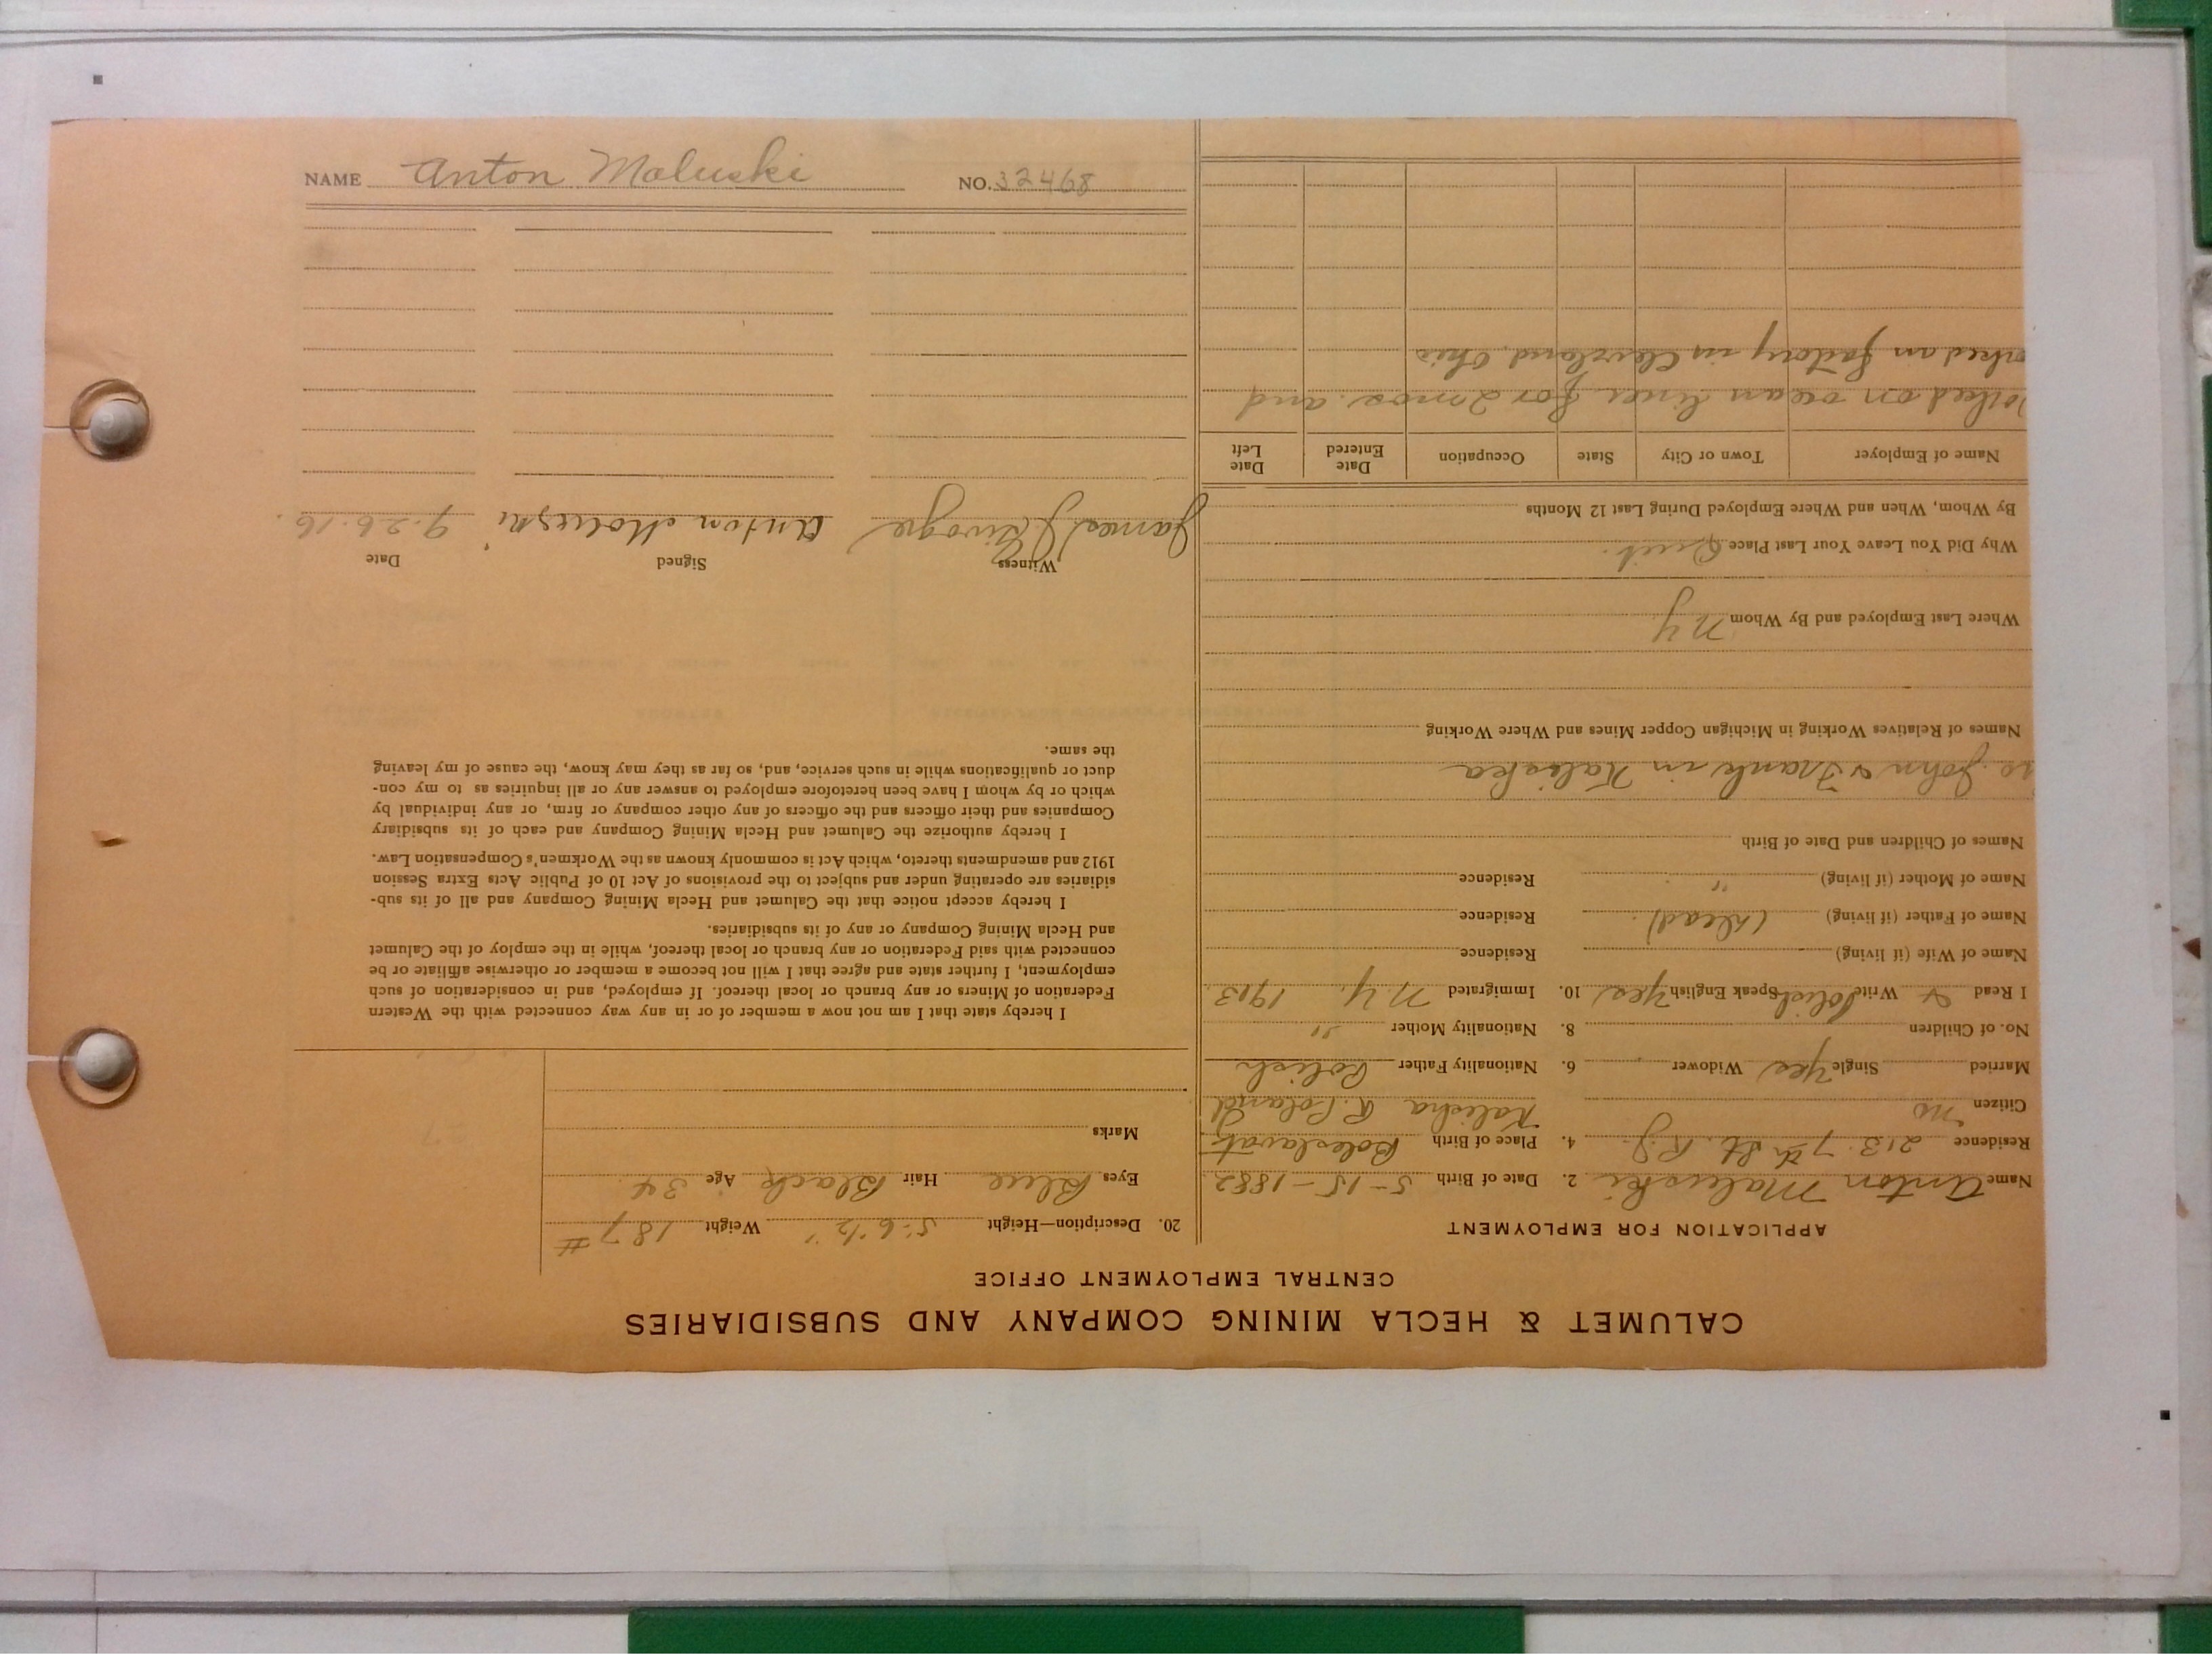 NAME Anton Maluski NO. 32468
CALUMET & HECLA MINING COMPANY AND SUBSIDIARIES
CENTRAL EMPLOYMENT OFFICE
APPLICATION FOR EMPLOYMENT
Name Anton Maluski 2. Date of Birth 5-15-1882
Residence 213 7th St. R.J. 4. Place of Birth Boleslawat
Citizen no Kalisha R. Poland
Married Single yes Widower 6. Nationality Father Polish
No. of Children 8. Nationality Mother "
I Read & Write Polish Speak English yes 10. Immigrated N.Y. 1903
Name of Wife (if living) Residence
Name of Father (if living) (dead) Residence
Name of Mother (if living) " Residence
Names of Children and Date of Birth
John & Frank in Kaliska
Names of Relatives Working in Michigan Copper Mines and Where Working
Where Last Employed and By Whom N.Y.
Why Did You Leave Your Last Place Quit.
By Whom, When and Where Employed During Last 12 Months
Name of Employer Town or City State Occupation Date Entered Date Left
orked on ocean liner for 2 mos. and
orked an factory in Cleveland, Ohio
20. Description—Height 5' 6 1/2" Weight 187 #
Eyes Blue Hair Black Age 34
Marks
I hereby state that I am not now a member of or in any way connected with the Western
Federation of Miners or any branch or local thereof. If employed, and in consideration of such
employment, I further state and agree that I will not become a member or otherwise affiliate or be
connected with said Federation or any branch or local thereof, while in the employ of the Calumet
and Hecla Mining Company or any of its subsidiaries.
I hereby accept notice that the Calumet and Hecla Mining Company and all of its sub-
sidiaries are operating under and subject to the provisions of Act 10 of Public Acts Extra Session
1912 and amendments thereto, which Act is commonly known as the Workmen's Compensation Law.
I hereby authorize the Calumet and Hecla Mining Company and each of its subsidiary
Companies and their officers and the officers of any other company or firm, or any individual by
which or by whom I have been heretofore employed to answer any or all inquiries as to my con-
duct or qualifications while in such service, and, so far as they may know, the cause of my leaving
the same.
Witness Signed Date
James Anton Moluski 9-26-16.